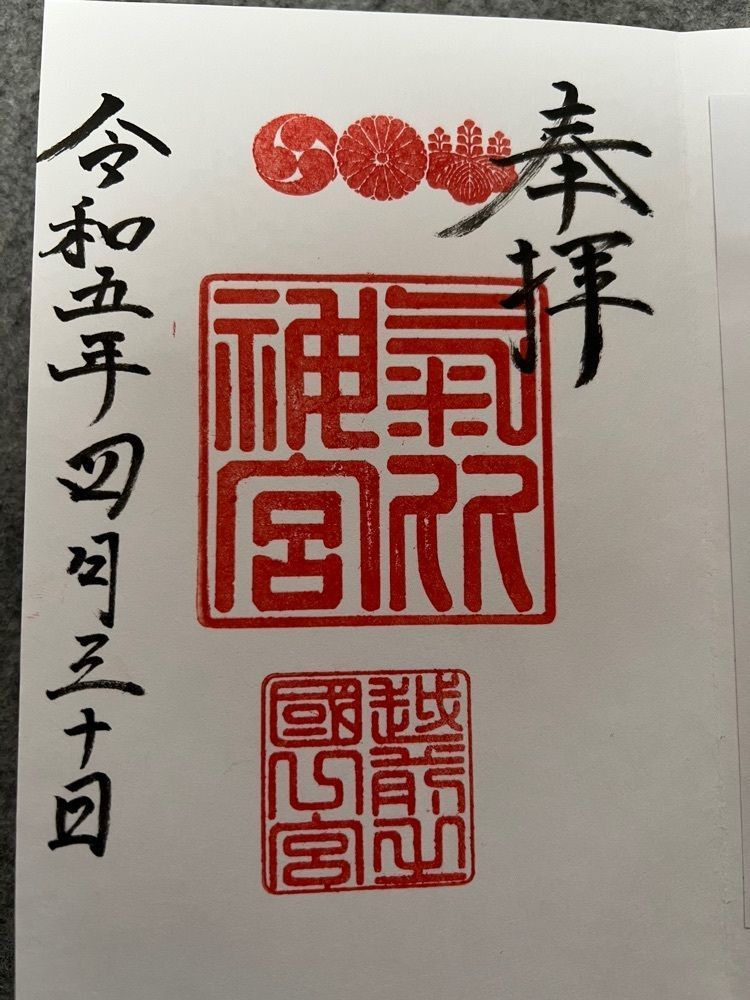 奉拝
氣比
神宮
越前之
國一宮
令和五年四月三十日